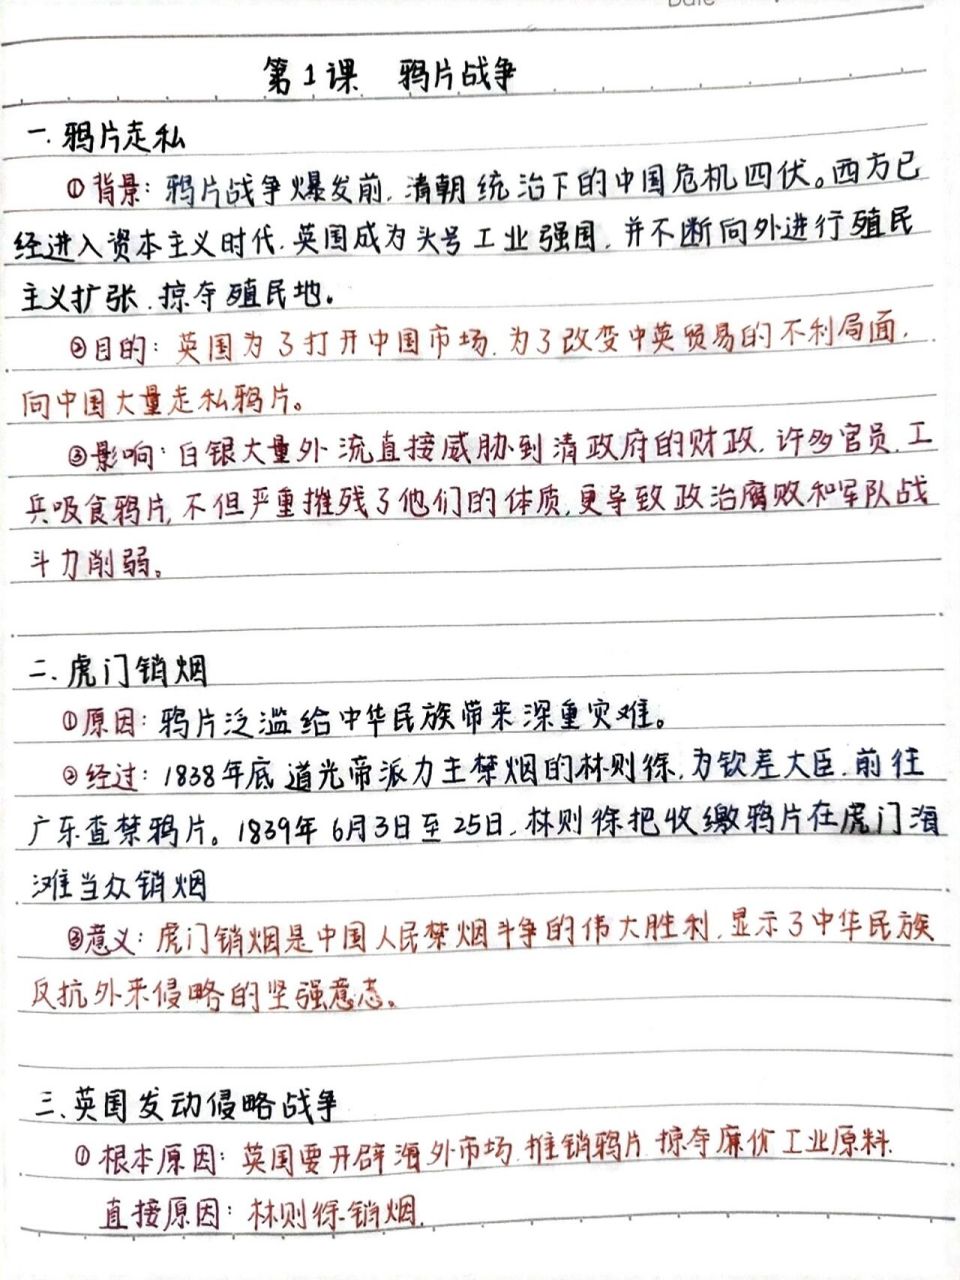 Date
第1课 鸦片战争
一. 鸦片走私
①背景: 鸦片战争爆发前, 清朝统治下的中国危机四伏。西方已
经进入资本主义时代, 英国成为头号工业强国, 并不断向外进行殖民
主义扩张, 掠夺殖民地。
②目的: 英国为了打开中国市场, 为了改变中英贸易的不利局面,
向中国大量走私鸦片。
③影响: 白银大量外流直接威胁到清政府的财政, 许多官员、工
兵吸食鸦片, 不但严重摧残了他们的体质, 更导致政治腐败和军队战
斗力削弱。
二. 虎门销烟
①原因: 鸦片泛滥给中华民族带来深重灾难。
②经过: 1838年底, 道光帝派力主禁烟的林则徐, 为钦差大臣, 前往
广东查禁鸦片。1839年6月3日至25日, 林则徐把收缴鸦片在虎门海
滩当众销烟
③意义: 虎门销烟是中国人民禁烟斗争的伟大胜利, 显示了中华民族
反抗外来侵略的坚强意志。
三、英国发动侵略战争
①根本原因: 英国要开辟海外市场, 推销鸦片, 掠夺廉价工业原料.
直接原因: 林则徐销烟.